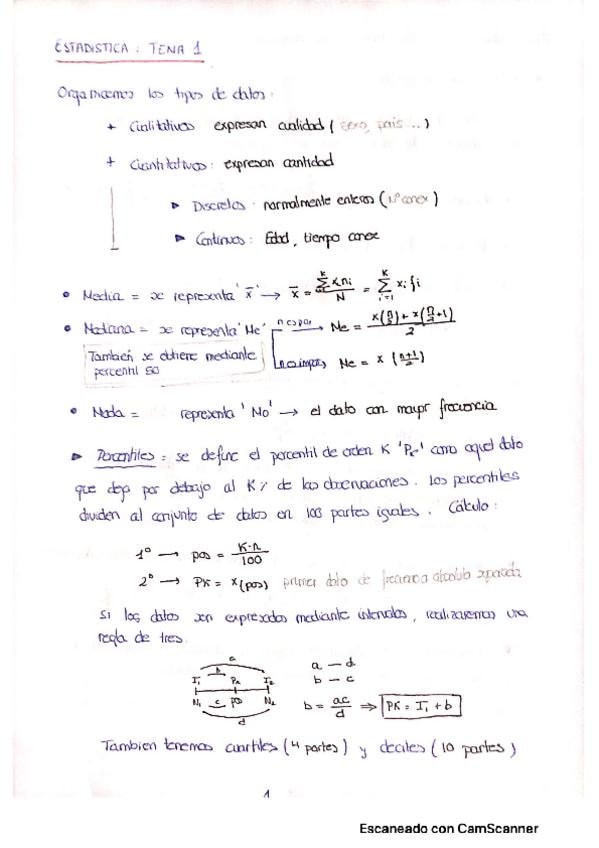 ESTADISTICA : TEMA 1
Organicemos los tipos de datos :
+ Cualitativos expresan cualidad ( sexo, pais ... )
+ Cuantitativos : expresan cantidad
▶ Discretos : normalmente enteros ( Nº conex )
▶ Continuos : Edad, tiempo conex
• Media = se representa ' x̄ ' → x̄ = Σ xᵢnᵢ / N = Σ xᵢ fᵢ
• Mediana = se representa ' Me ' n es par → Me = x(n/2) + x(n/2+1) / 2
También se obtiene mediante percentil 50
n es impar → Me = x (n+1/2)
• Moda = representa ' Mo ' → el dato con mayor frecuencia
▶ Percentiles : se define el percentil de orden K ' Pₖ ' como aquel dato
que deja por debajo al K % de las observaciones . Los percentiles
dividen al conjunto de datos en 100 partes iguales . Cálculo :
1º → pos = K·n / 100
2º → PK = x(pos) primer dato de frecuencia absoluta
Si los datos son expresados mediante intervalos , realizaremos una
regla de tres.
a
b
I₁ Pₖ I₂
N₁ c N₂
d
a — d
b — c
b = ac/d ⇒ PK = I₁ + b
Tambien tenemos cuartiles ( 4 partes ) y deciles ( 10 partes )
1
Escaneado con CamScanner